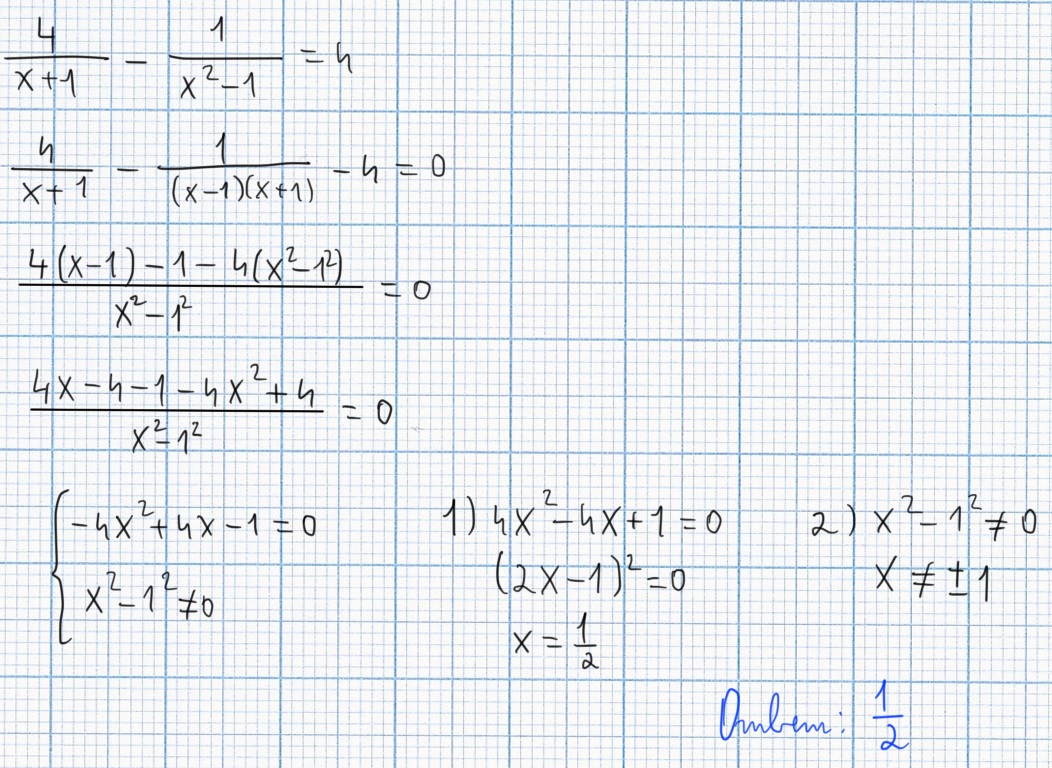 4/(x+1) − 1/(x²−1) = 4
4/(x+1) − 1/((x−1)(x+1)) − 4 = 0
(4(x−1) − 1 − 4(x²−1²))/(x²−1²) = 0
(4x − 4 − 1 − 4x² + 4)/(x²−1²) = 0
{ −4x² + 4x − 1 = 0
x² − 1² ≠ 0
1) 4x² − 4x + 1 = 0
(2x−1)² = 0
x = 1/2
2) x² − 1² ≠ 0
x ≠ ±1
Ответ: 1/2